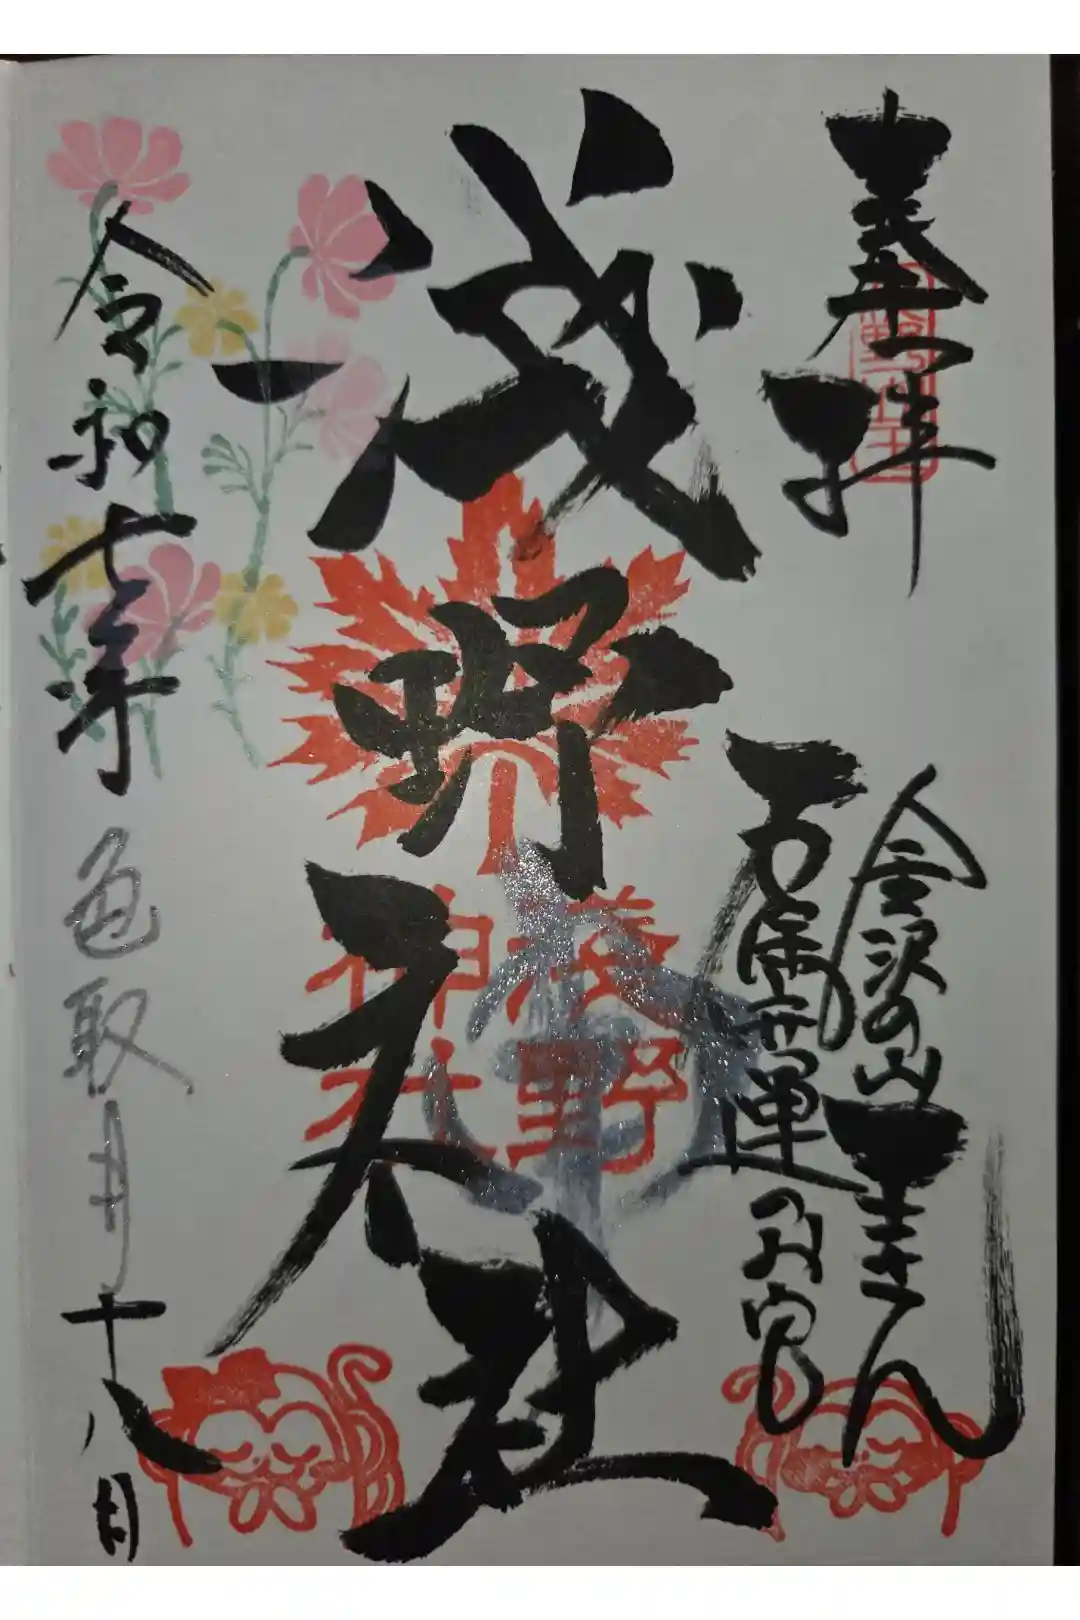 奉拝
金沢の山王さん
開運のお宮
浅野神社
浅野
神社
令和七年色取月十八日